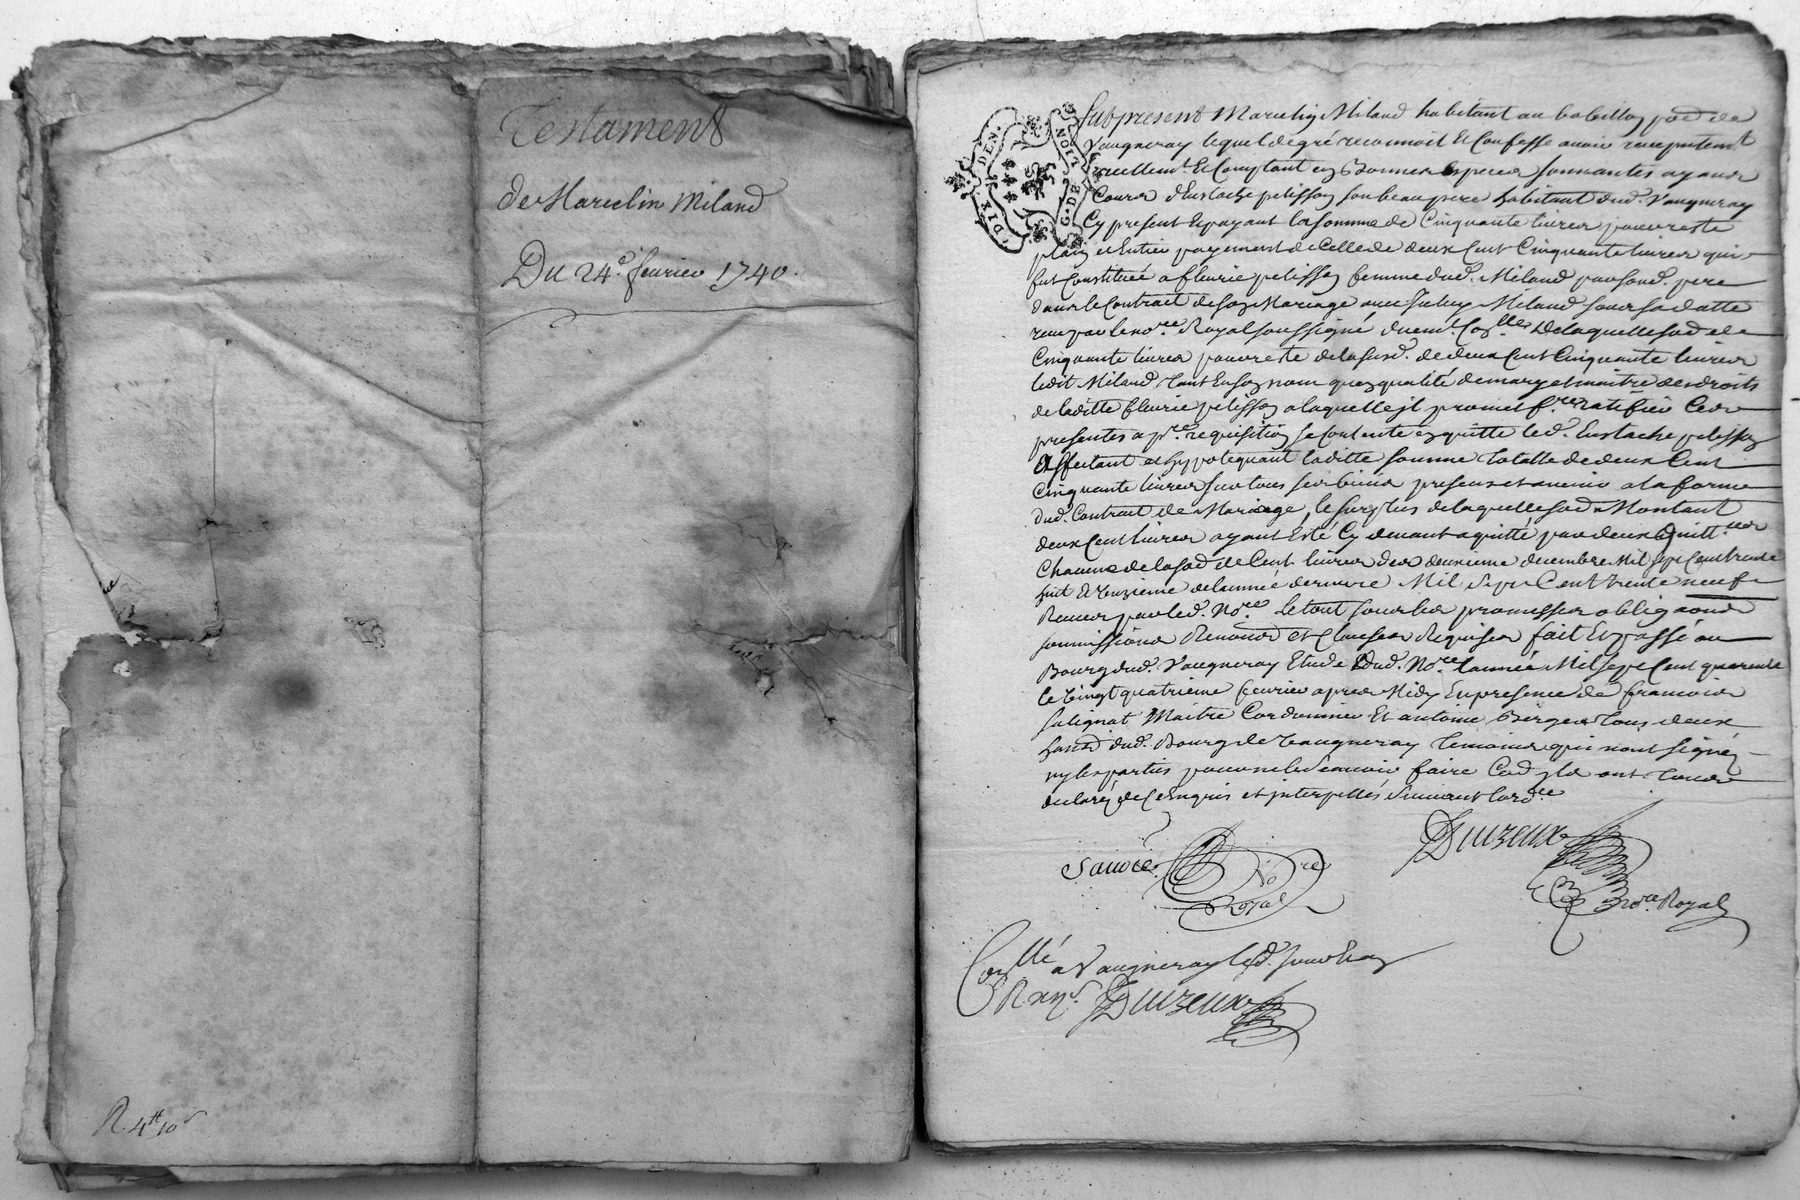 Testament
de Mareclin Miland
Du 24.e feurier 1740.
R 4tt 10s
DIX DEN.
G. DE LION
fut present Mareclin Miland habitant au de
Vaugneray lequel de gré reconnoit Et Confesse auoir
reellemt. Et Comptant en Bonnes Especes sonnantes ayans
Cours d'Eustache pelisson son beau pere habitant dud. Vaugneray
Cy present Et payant la somme de Cinquante liures pour reste
plain et Entier payement de Celle de deux Cent Cinquante liures qui
fut Constituée a fleurie pelisson femme dud. Miland par sond. pere
dans le Contrait de son Mariage auec Miland sous sa datte
receu par le nore. Royal soussigné de laquelle so
Cinquante liures pour reste de la susd. de deux Cent Cinquante liures
ledit Miland tant En son nom qu'en qualité de mary et maitre des droits
de laditte fleurie pelisson a laquelle jl promet fre. ratifier Ces
presentes a pre. requisition se Contente en quitte led. Eustache pelisson
Affectant et hypotequant laditte somme totalle de deux Cent
Cinquante liures sur tous ses biens presens et auenir a la forme
dud. Contrait de Mariage, le surplus de laquelle Montant
deux Cent liures ayant Esté Cy deuant aquitté par deux Quittces
Chacune de de Cent liures des deuxieme decembre Mil sept Cent trente
huit Et onzieme de l'année derniere Mil Sept Cent trente neuf
Receues par led. Nore. Le tout sous les promesses obligaons
soumissions Renonons et Clauses Requises fait Et passé au
Bourg dud. Vaugneray Etude dud. Nore. l'année Mil sept Cent quarente
le Vingt quatrieme feurier apres Midy En presence de francois
salignat Maitre Cordonnier Et antoine Berger tous deux
habts. dud. Bourg de Vaugneray temoins qui n'ont signé
ny les parties pour ne le sçauoir faire ont tous
declaré de Ce Enquis et jnterpellés Suiuant l'ordce.
Duizeux
Nore Royal
nore. Royal
Collé a Vaugneray led. jour
Duizeux